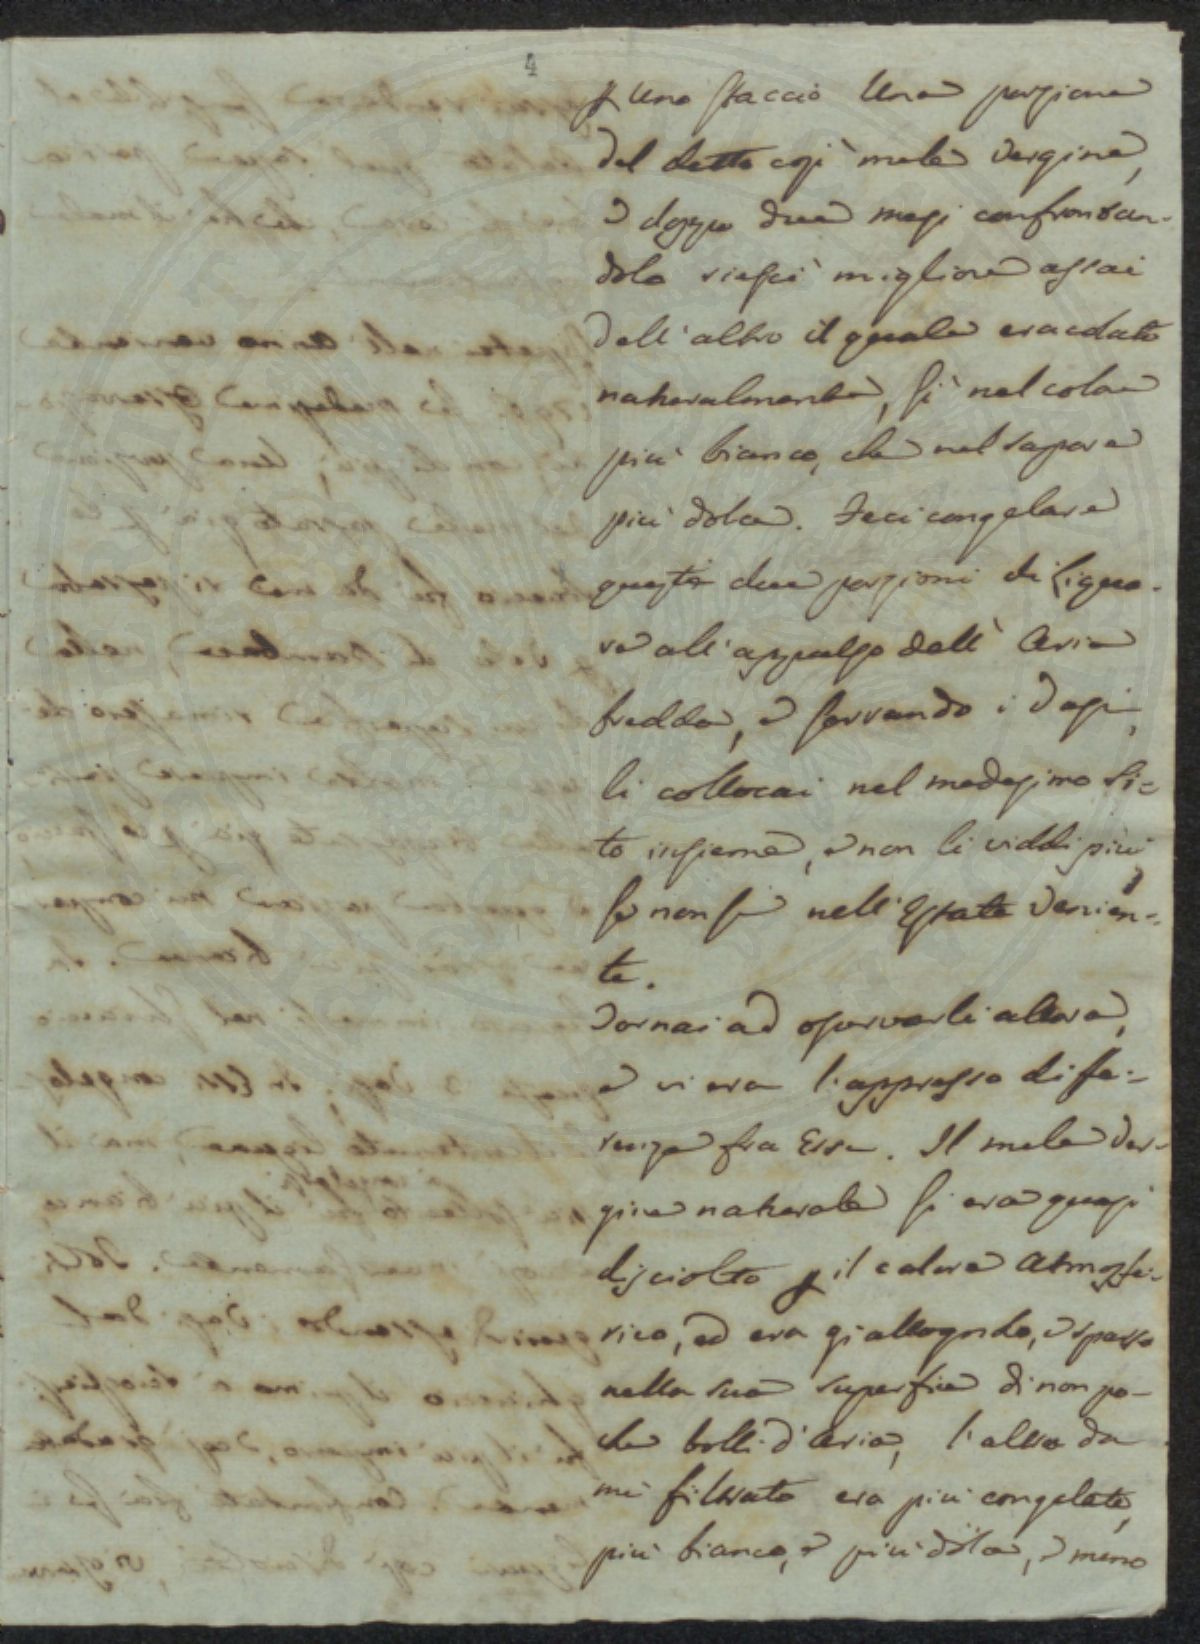 4
p uno staccio una porzione
del detto così mele vergine,
e doppo due mesi confrontan-
dolo riescì migliore assai
dell'altro il quale era colato
naturalmente, sì nel colore
più bianco, che nel sapore
più dolce. Feci congelare
queste due porzioni di liquo-
re all'appulso dell'Aria
fredda, e serrando i vasi,
li collocai nel medesimo si-
to insieme, e non li viddi più,
se non se nell'Estate venien-
te.
Tornai ad osservarli allora,
e vi era l'appresso diffe-
renza fra Esse. Il mele ver-
gine naturale si era quasi
disciolto p il calore Atmosfe-
rico, ed era giallognolo, e sparso
nella sua superficie di non po-
che bolle d'Aria, l'altro da
me filtrato era più congelato,
più bianco, e più dolce, e meno